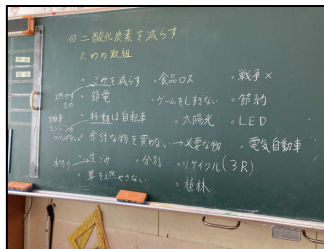 ◎二酸化炭素を減らす
ための取組
・ゴミを減らす ・食品ロス ・戦争×
・節電 ・ゲームをしすぎない ・節約
・移動は自転車 ・太陽光 ・LED
・余計な物を買わない→必要な物 ・電気自動車
・生ごみ ・分別 ・リサイクル(3R)
・草を燃やさない ・植林